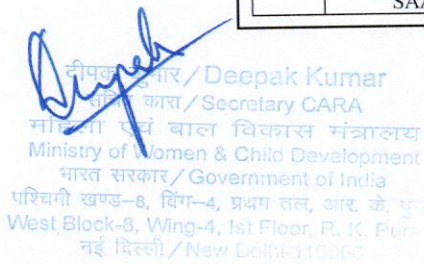 SAA
दीपक कुमार / Deepak Kumar
सचिव कारा / Secretary CARA
महिला एवं बाल विकास मंत्रालय
Ministry of Women & Child Development
भारत सरकार / Government of India
पश्चिमी खण्ड–8, विंग–4, प्रथम तल, आर. के.
West Block-8, Wing-4, Ist Floor, R. K.
नई दिल्ली / New Delhi-1100